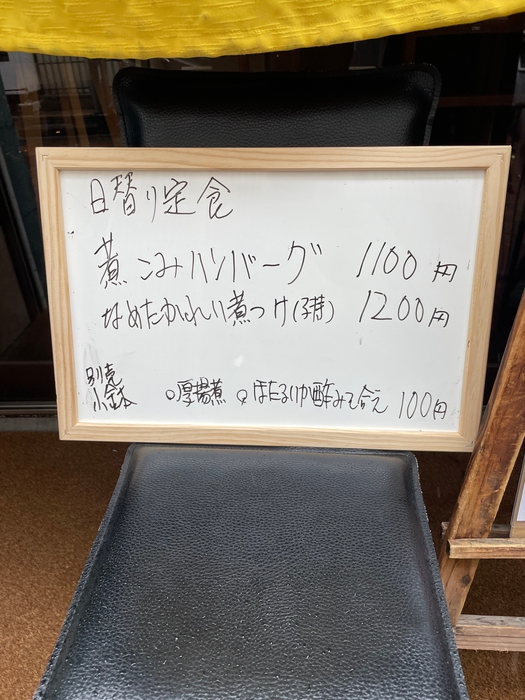 日替り定食
煮こみハンバーグ 1100円
なめたかれい煮つけ(子持) 1200円
別売
小鉢 ○厚揚煮 ○ほたるいか酢みそ合え 100円